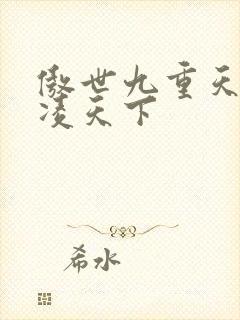 傲世九重天
凌天下
希水